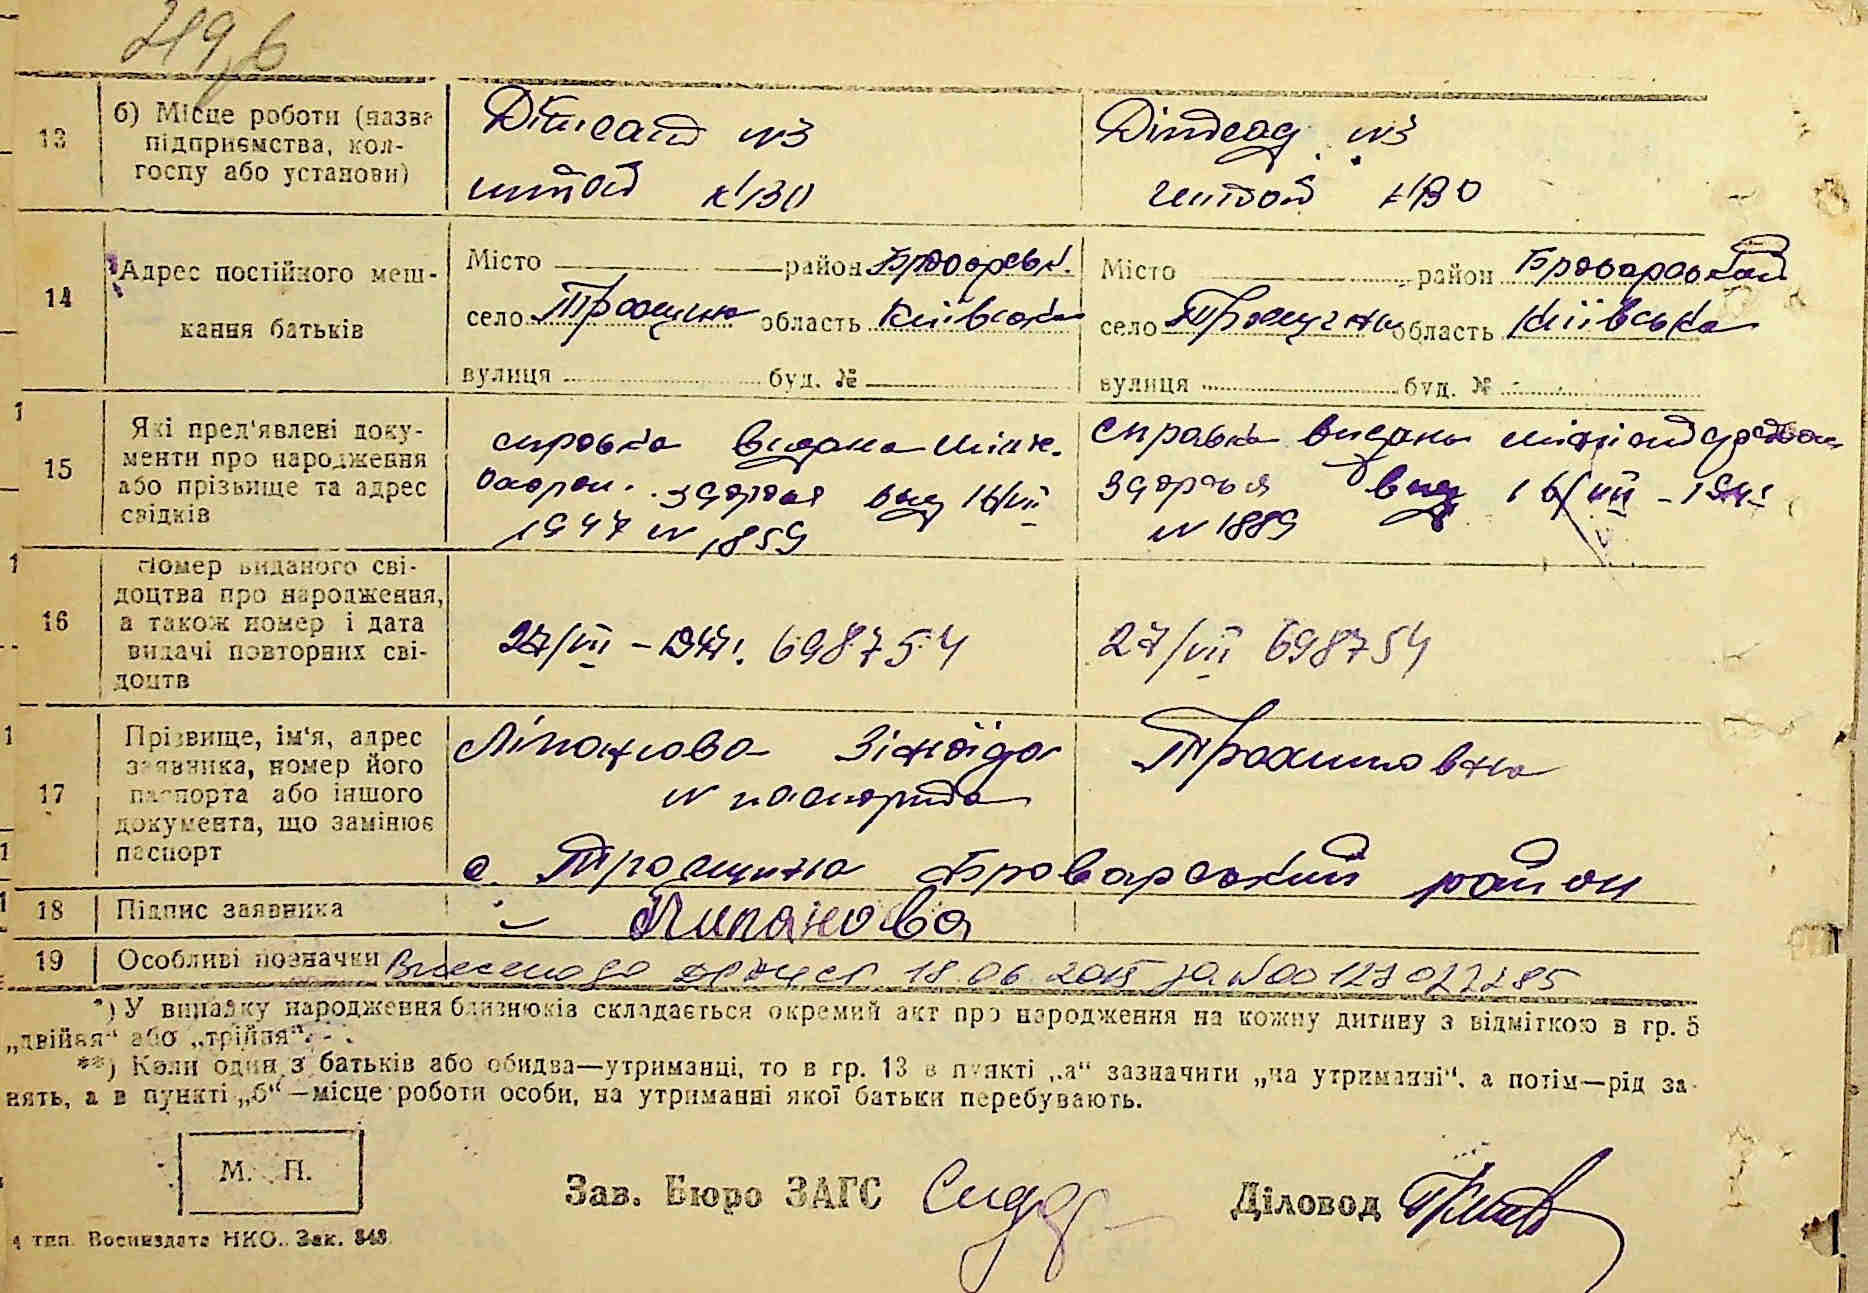 219,б
13
б) Місце роботи (назва підприємства, колгоспу або установи)
Дітсад №3
штаб КВО
Дітдсад №3
штаб КВО
14
Адрес постійного мешкання батьків
Місто район Броварськ.
село Троєщина область Київська
вулиця буд. №
Місто район Броварський
село Троєщина область Київська
вулиця буд. №
15
Які пред'явлені документи про народження або прізвище та адрес свідків
справка видана Мін.
охорон. здоровя від 16/VII
1947 № 1859
справка видана
здоровья від 16/VII - 194
№ 1889
16
Номер виданого свідоцтва про народження, а також номер і дата видачі повторних свідоцтв
27/VII - 1947. 698754
27/VII 698754
17
Прізвище, ім'я, адрес заявника, номер його паспорта або іншого документа, що замінює паспорт
Ліпанова Зінаїда Трохимовна
№ паспорта
с. Троєщина Броварський район
18
Підпис заявника
Липанова
19
Особливі позначки
Внесено до 18.06.2015 за №00127022285
*) У випадку народження близнюків складається окремий акт про народження на кожну дитину з відміткою в гр. 5
„двійня“ або „трійня“.
**) Коли один з батьків або обидва—утриманці, то в гр. 13 в пункті „а“ зазначити „на утриманні“, а потім—рід за-
нять, а в пункті „б“—місце роботи особи, на утриманні якої батьки перебувають.
М. П.
Зав. Бюро ЗАГС
Діловод
4 тип. Воениздата НКО. Зак. 343